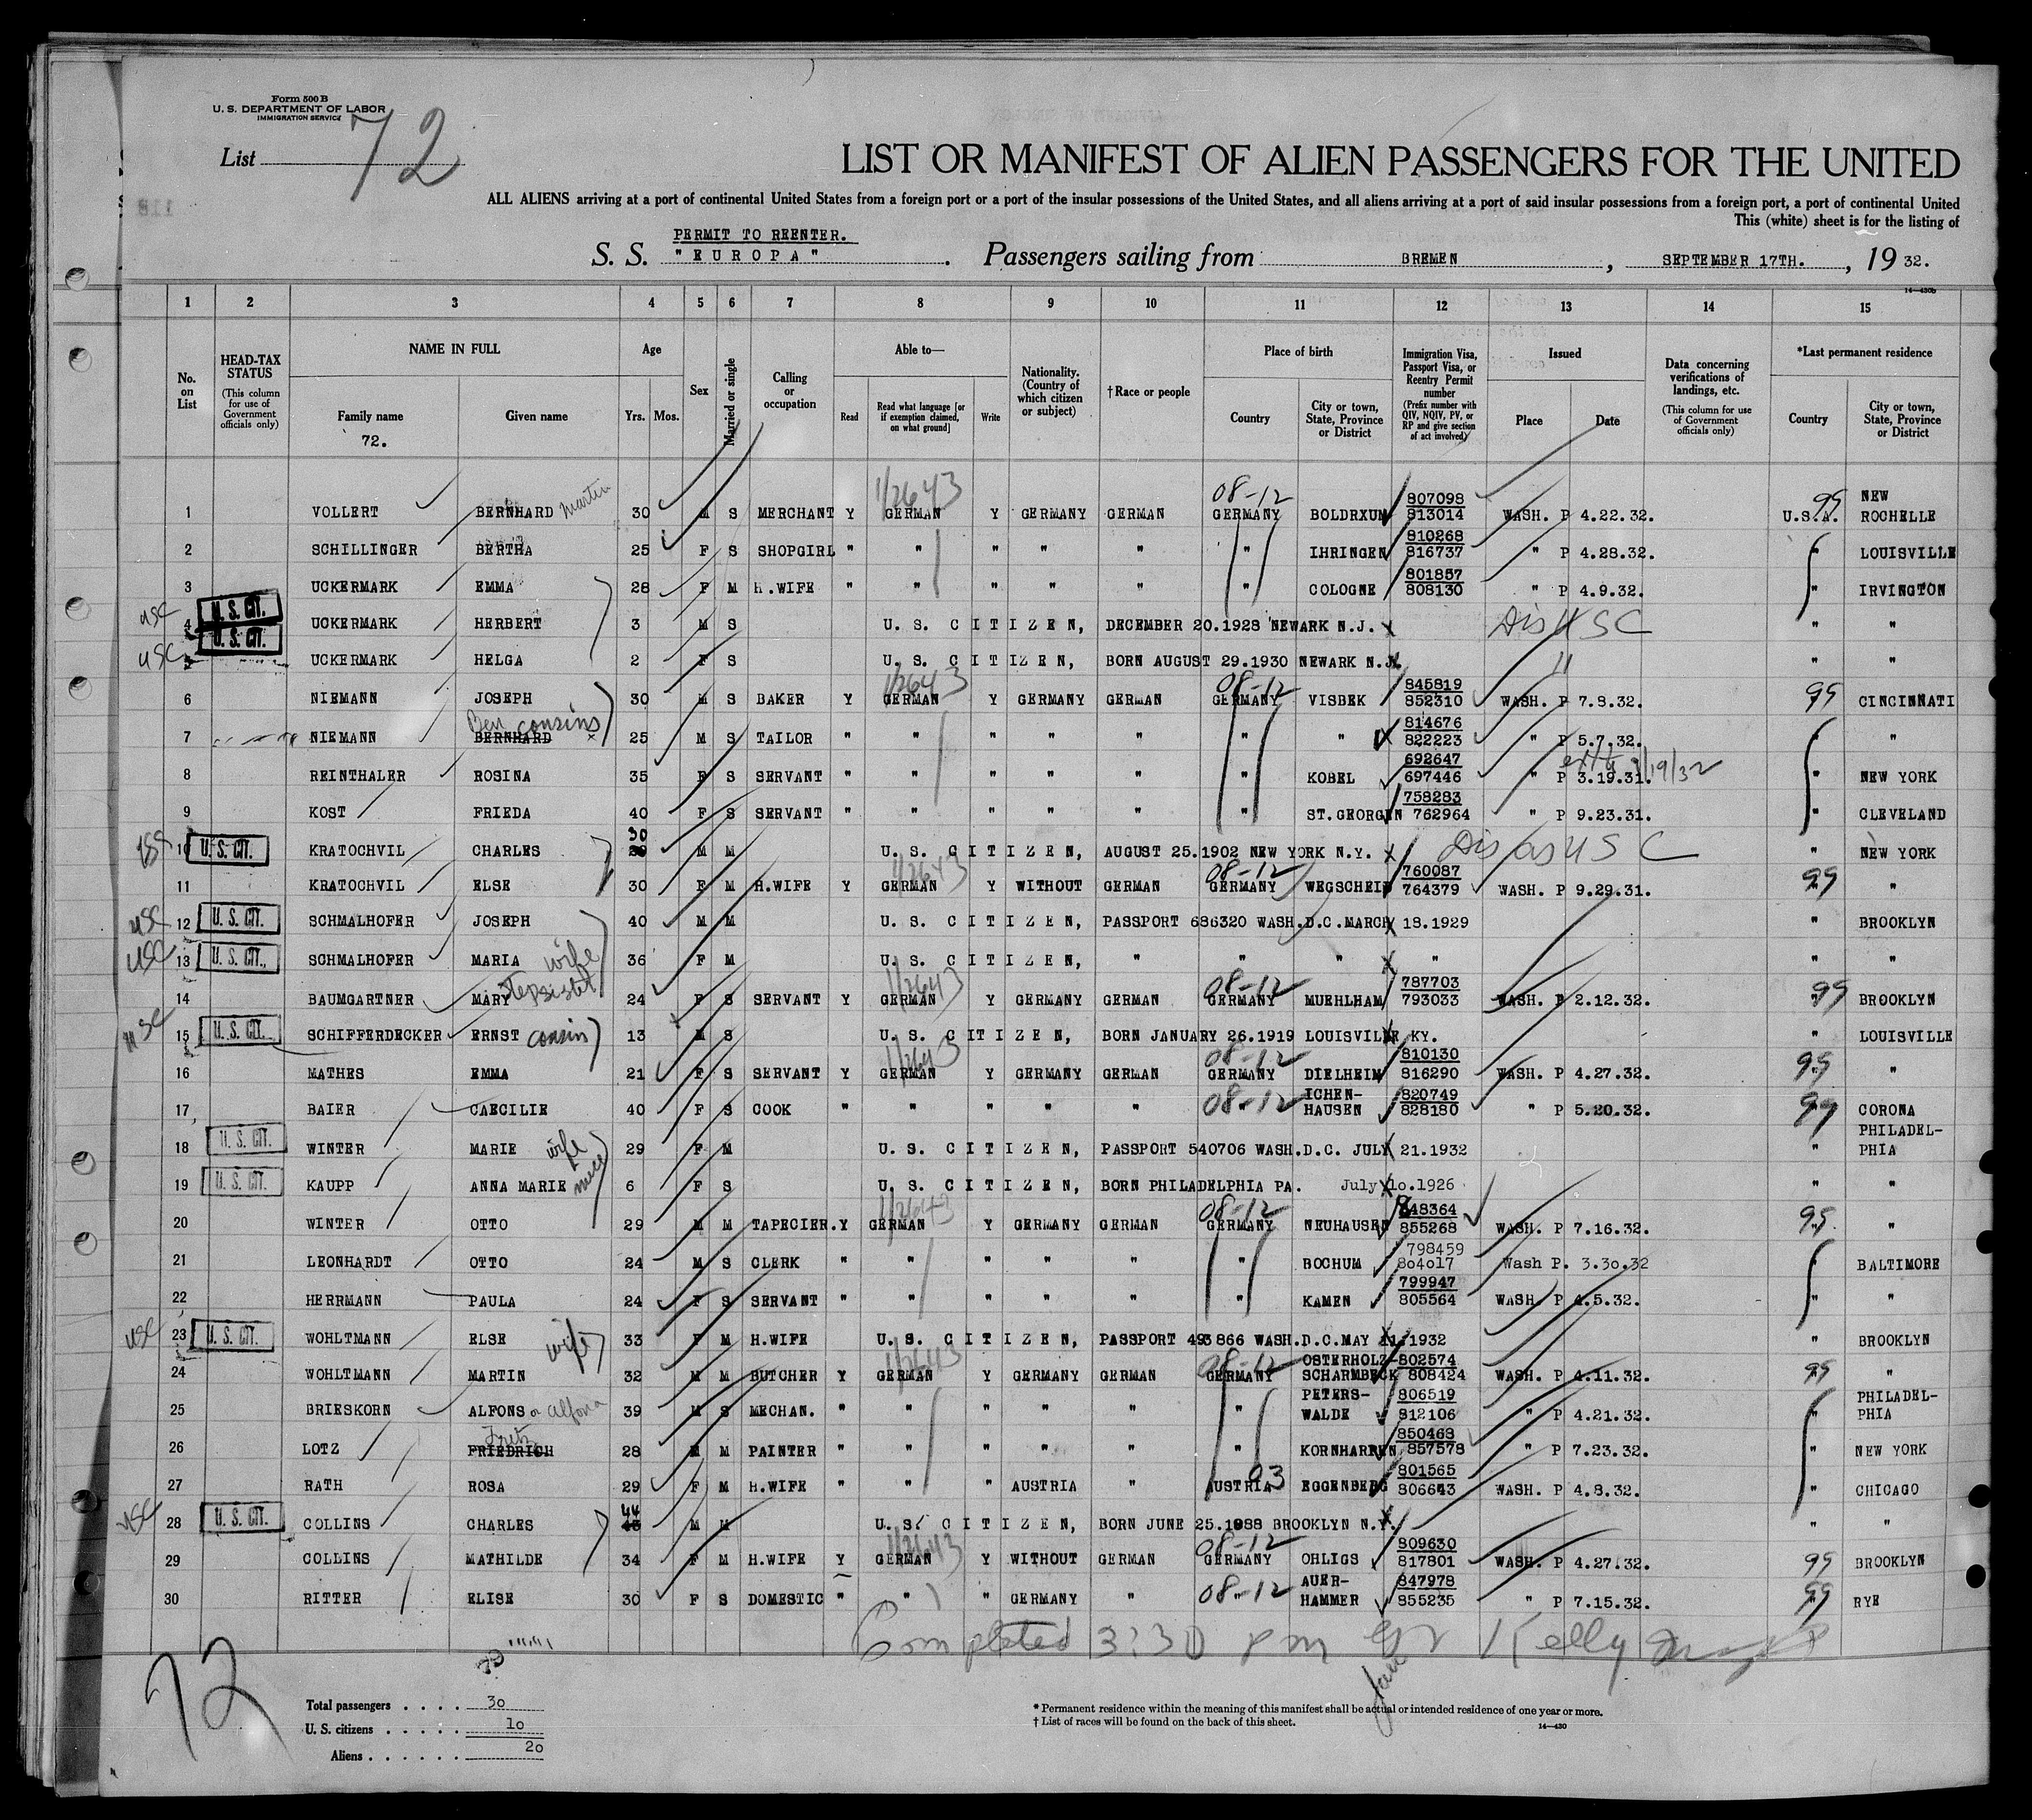 Form 500 B
U. S. DEPARTMENT OF LABOR
IMMIGRATION SERVICE
List 72
LIST OR MANIFEST OF ALIEN PASSENGERS FOR THE UNITED
ALL ALIENS arriving at a port of continental United States from a foreign port or a port of the insular possessions of the United States, and all aliens arriving at a port of said insular possessions from a foreign port, a port of continental United
This (white) sheet is for the listing of
PERMIT TO REENTER.
S. S. "EUROPA". Passengers sailing from BREMEN, SEPTEMBER 17TH., 19 32.
14—430b
1 2 3 4 5 6 7 8 9 10 11 12 13 14 15
No. on List
HEAD-TAX STATUS (This column for use of Government officials only)
NAME IN FULL
Family name Given name
72.
Age
Yrs. Mos.
Sex
Married or single
Calling or occupation
Able to—
Read Read what language [or if exemption claimed, on what ground] Write
Nationality. (Country of which citizen or subject)
†Race or people
Place of birth
Country City or town, State, Province or District
Immigration Visa, Passport Visa, or Reentry Permit number (Prefix number with QIV, NQIV, PV, or RP and give section of act involved)
Issued
Place Date
Data concerning verifications of landings, etc. (This column for use of Government officials only)
*Last permanent residence
Country City or town, State, Province or District
1 VOLLERT BERNHARD Martin 30 M S MERCHANT Y GERMAN 1/2643 Y GERMANY GERMAN 08-12 GERMANY BOLDRXUM 807098 813014 WASH. P 4.22.32. U.S.A. 99 NEW ROCHELLE
2 SCHILLINGER BERTHA 25 F S SHOPGIRL " " " " " " IHRINGEN 810268 816737 " P 4.28.32. " LOUISVILLE
3 UCKERMARK EMMA 28 F M H.WIFE " " " " " " COLOGNE 801857 808130 " P 4.9.32. " IRVINGTON
USC 4 U. S. CIT. UCKERMARK HERBERT 3 M S U. S. CITIZEN, DECEMBER 20.1928 NEWARK N.J. Dis USC " "
USC U. S. CIT. UCKERMARK HELGA 2 F S U. S. CITIZEN, BORN AUGUST 29.1930 NEWARK N.J. " " "
6 NIEMANN JOSEPH 30 M S BAKER Y GERMAN 1/2643 Y GERMANY GERMAN 08-12 GERMANY VISBEK 845819 852310 WASH. P 7.8.32. 99 CINCINNATI
7 NIEMANN BERNHARD Ben cousins 25 M S TAILOR " " " " " " " 814676 822223 " P 5.7.32. " "
8 REINTHALER ROSINA 35 F S SERVANT " " " " " " KOBEL 692647 697446 " P 3.19.31. 9/19/32 " NEW YORK
9 KOST FRIEDA 40 F S SERVANT " " " " " " ST.GEORGEN 758283 762964 " P 9.23.31. " CLEVELAND
USC 10 U. S. CIT. KRATOCHVIL CHARLES 30 M M U. S. CITIZEN, AUGUST 25.1902 NEW YORK N.Y. Dis as USC " NEW YORK
11 KRATOCHVIL ELSE 30 F M H.WIFE Y GERMAN 1/2643 Y WITHOUT GERMAN 08-12 GERMANY WEGSCHEID 760087 764379 WASH. P 9.29.31. 99 "
USC 12 U. S. CIT. SCHMALHOFER JOSEPH 40 M M U. S. CITIZEN, PASSPORT 686320 WASH.D.C.MARCH 18.1929 " BROOKLYN
USC 13 U. S. CIT. SCHMALHOFER MARIA wife 36 F M U. S. CITIZEN, " " " " " "
14 BAUMGARTNER MARY stepsister 24 F S SERVANT Y GERMAN 1/2643 Y GERMANY GERMAN 08-12 GERMANY MUEHLHAM 787703 793033 WASH. P 2.12.32. 99 BROOKLYN
USC 15 U. S. CIT. SCHIFFERDECKER ERNST cousin 13 M S U. S. CITIZEN, BORN JANUARY 26.1919 LOUISVILLE KY. " LOUISVILLE
16 MATHES EMMA 21 F S SERVANT Y GERMAN 1/2643 Y GERMANY GERMAN 08-12 GERMANY DIELHEIM 810130 816290 WASH. P 4.27.32. 99 "
17 BAIER CAECILIE 40 F S COOK " " " " " 08-12 " ICHEN-HAUSEN 820749 828180 " P 5.20.32. 99 CORONA
18 U. S. CIT. WINTER MARIE wife 29 F M U. S. CITIZEN, PASSPORT 540706 WASH.D.C. JULY 21.1932 " PHILADEL-PHIA
19 U. S. CIT. KAUPP ANNA MARIE niece 6 F S U. S. CITIZEN, BORN PHILADELPHIA PA. July 10.1926 " "
20 WINTER OTTO 29 M M TAPECIER. Y GERMAN 1/2643 Y GERMANY GERMAN 08-12 GERMANY NEUHAUSEN 848364 855268 WASH. P 7.16.32. 99 "
21 LEONHARDT OTTO 24 M S CLERK " " " " " " BOCHUM 798459 804017 Wash P. 3.30.32 " BALTIMORE
22 HERRMANN PAULA 24 F S SERVANT " " " " " " KAMEN 799947 805564 WASH. P 4.5.32. " "
USC 23 U. S. CIT. WOHLTMANN ELSE wife 33 F M H.WIFE U. S. CITIZEN, PASSPORT 493866 WASH.D.C.MAY 11.1932 " BROOKLYN
24 WOHLTMANN MARTIN 32 M M BUTCHER Y GERMAN 1/2643 Y GERMANY GERMAN 08-12 GERMANY OSTERHOLZ-SCHARMBECK 802574 808424 WASH. P 4.11.32. 99 "
25 BRIESKORN ALFONS or Alfona 39 M S MECHAN. " " " " " " PETERS-WALDE 806519 812106 " P 4.21.32. " PHILADEL-PHIA
26 LOTZ FRIEDRICH Fritz 28 M M PAINTER " " " " " " KORNHARREN 850468 857578 " P 7.23.32. " NEW YORK
27 RATH ROSA 29 F M H.WIFE " " " AUSTRIA " AUSTRIA 03 EGGENBERG 801565 806643 WASH. P 4.8.32. " CHICAGO
USC 28 U. S. CIT. COLLINS CHARLES 44 M M U. S. CITIZEN, BORN JUNE 25.1888 BROOKLYN N.Y. " "
29 COLLINS MATHILDE 34 F M H.WIFE Y GERMAN 1/2643 Y WITHOUT GERMAN 08-12 GERMANY OHLIGS 809630 817801 WASH. P 4.27.32. 99 BROOKLYN
30 RITTER ELISE 30 F S DOMESTIC " " " GERMANY " 08-12 " AUER-HAMMER 847978 855235 " P 7.15.32. 99 RYE
Completed 3:30 pm Kelly
72
Total passengers . . . . 30
U. S. citizens . . . . . 10
Aliens . . . . . . 20
* Permanent residence within the meaning of this manifest shall be actual or intended residence of one year or more.
† List of races will be found on the back of this sheet.
14—430